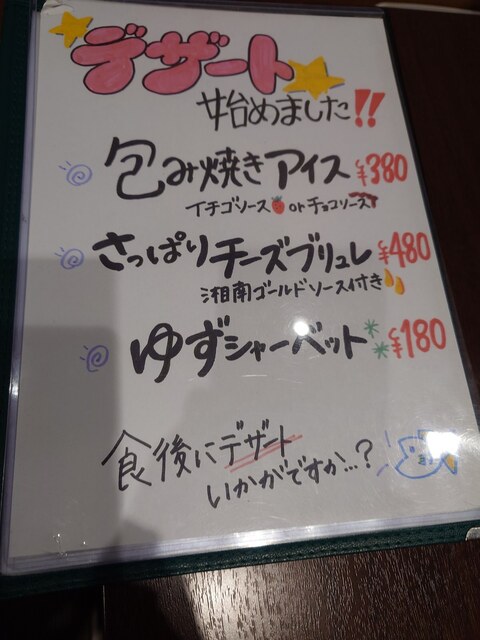 デザート
始めました!!
包み焼きアイス ¥380
イチゴソース or チョコソース
さっぱりチーズブリュレ ¥480
湘南ゴールドソース付き
ゆずシャーベット ¥180
食後にデザート
いかがですか…?